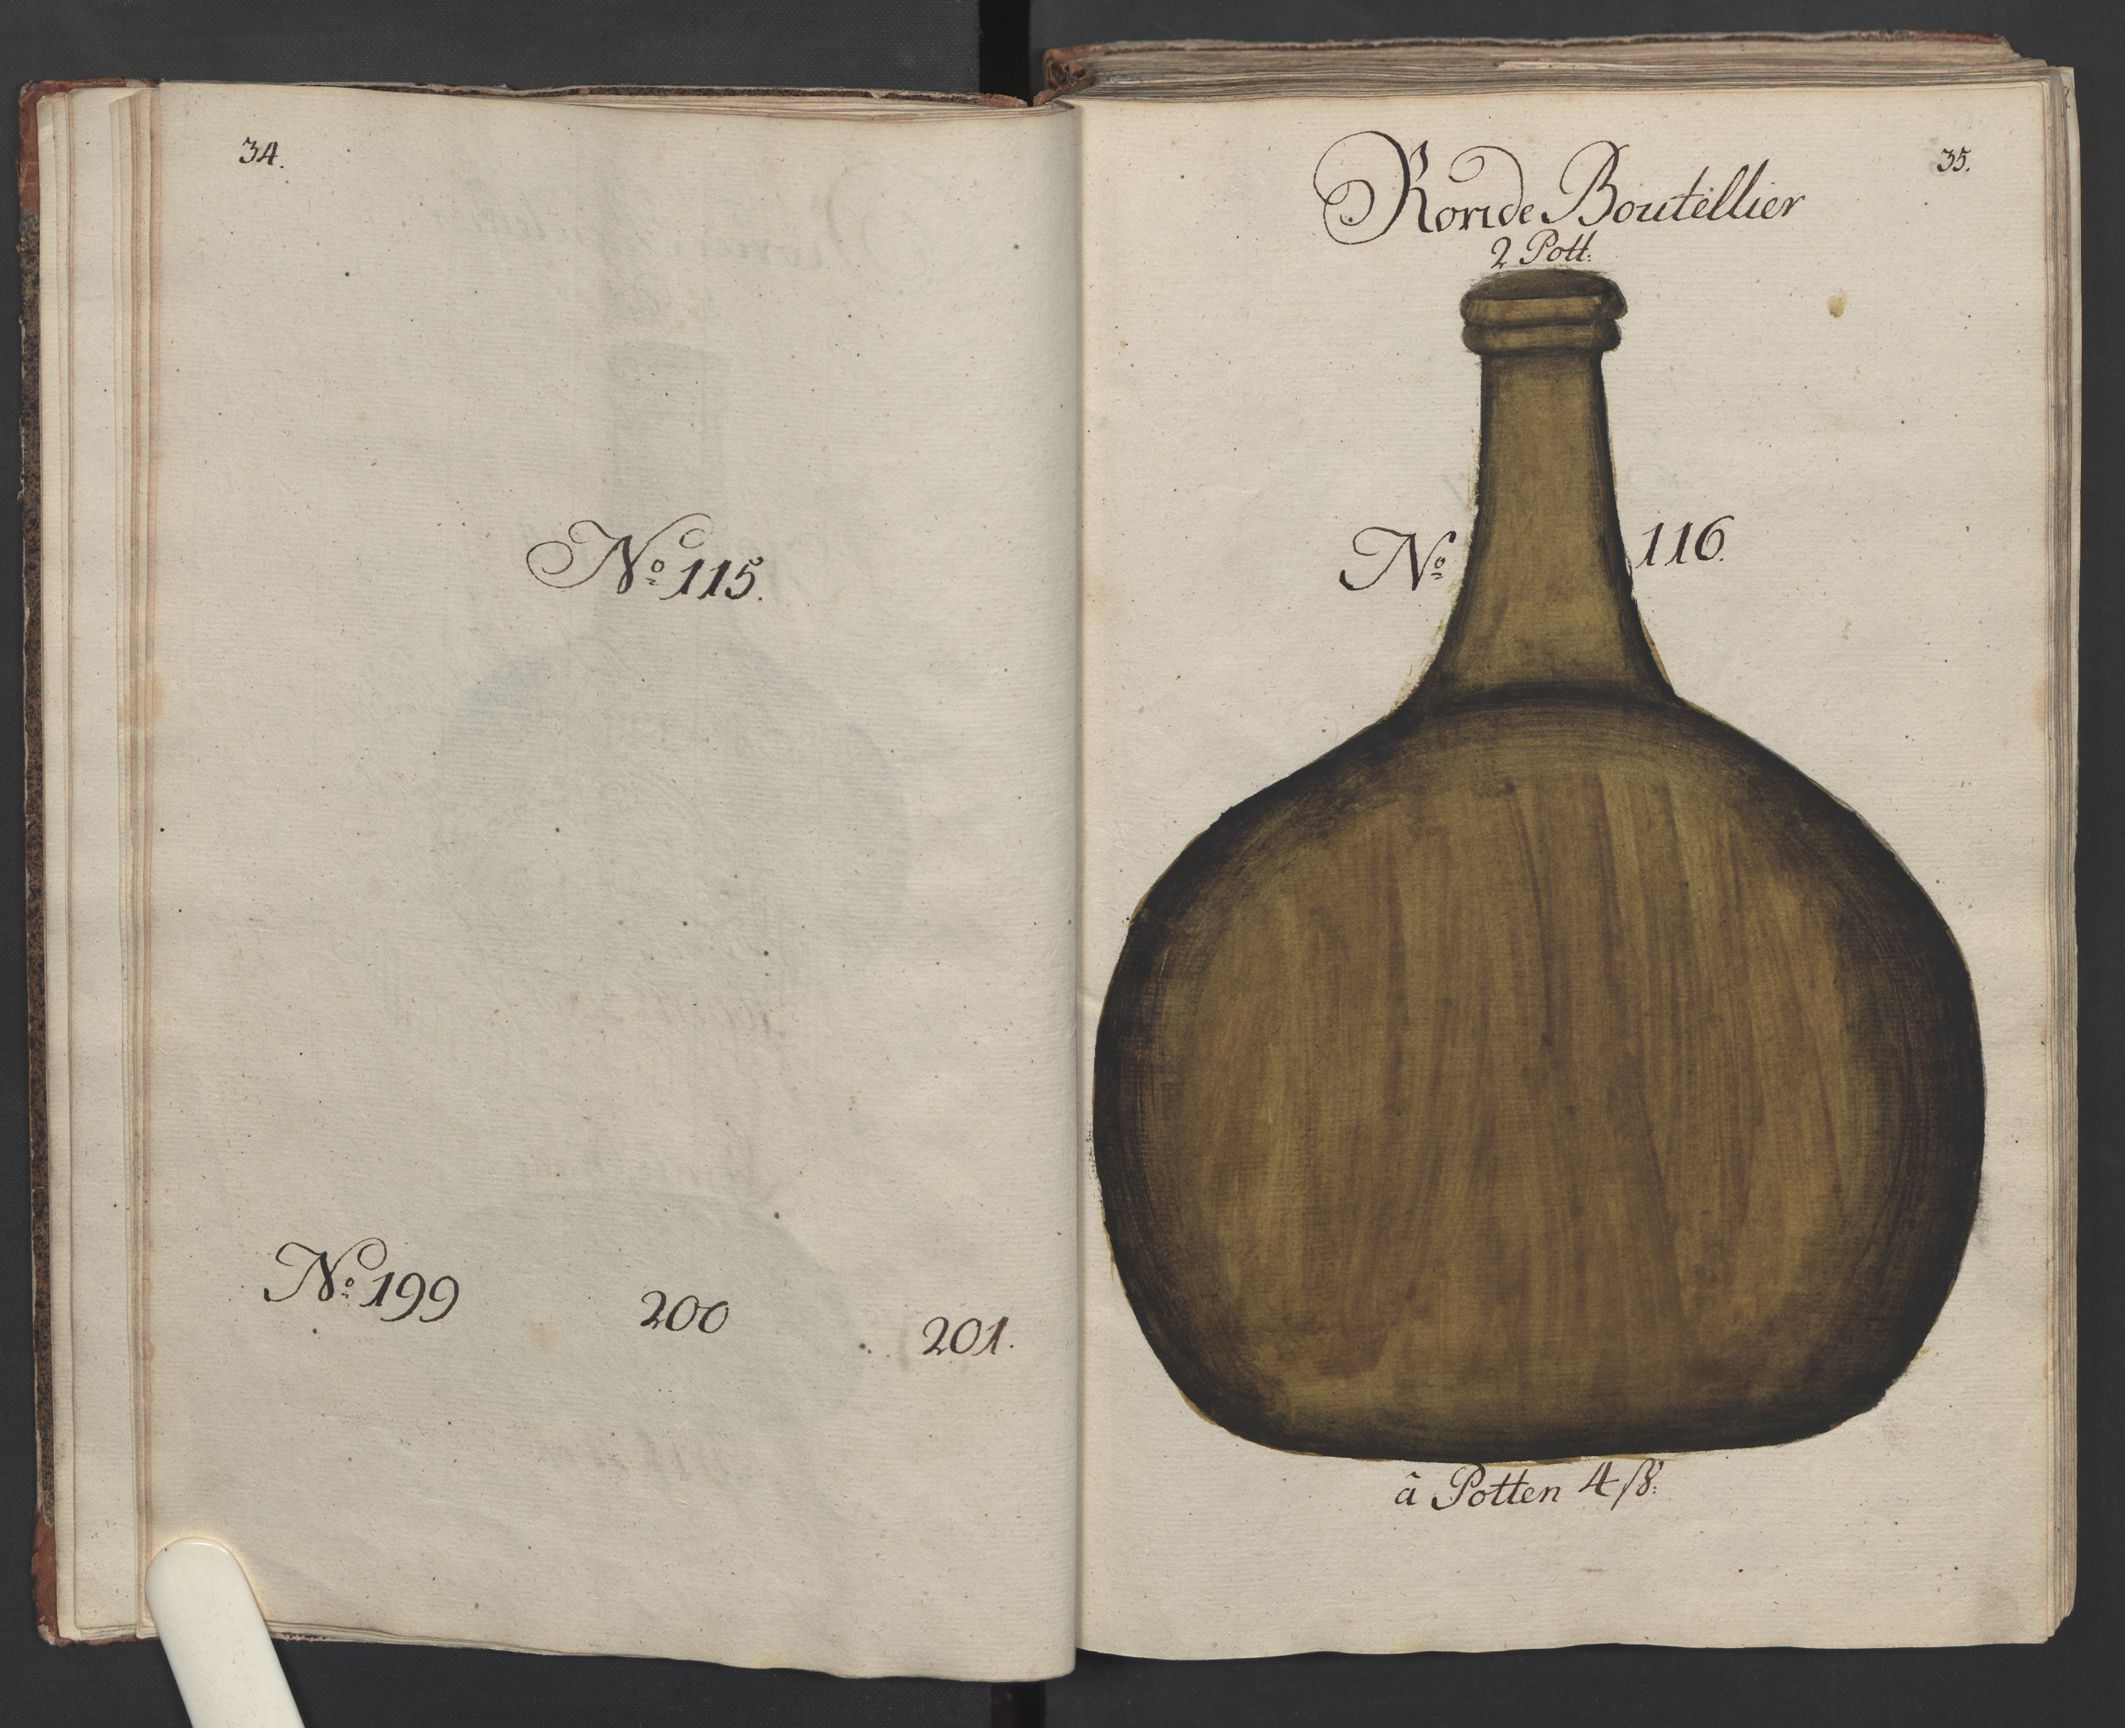 34.
No 115.
No 199 200 201.
35.
Ronde Boutellier
2 Pott:
No 116.
â Potten 4 ß: